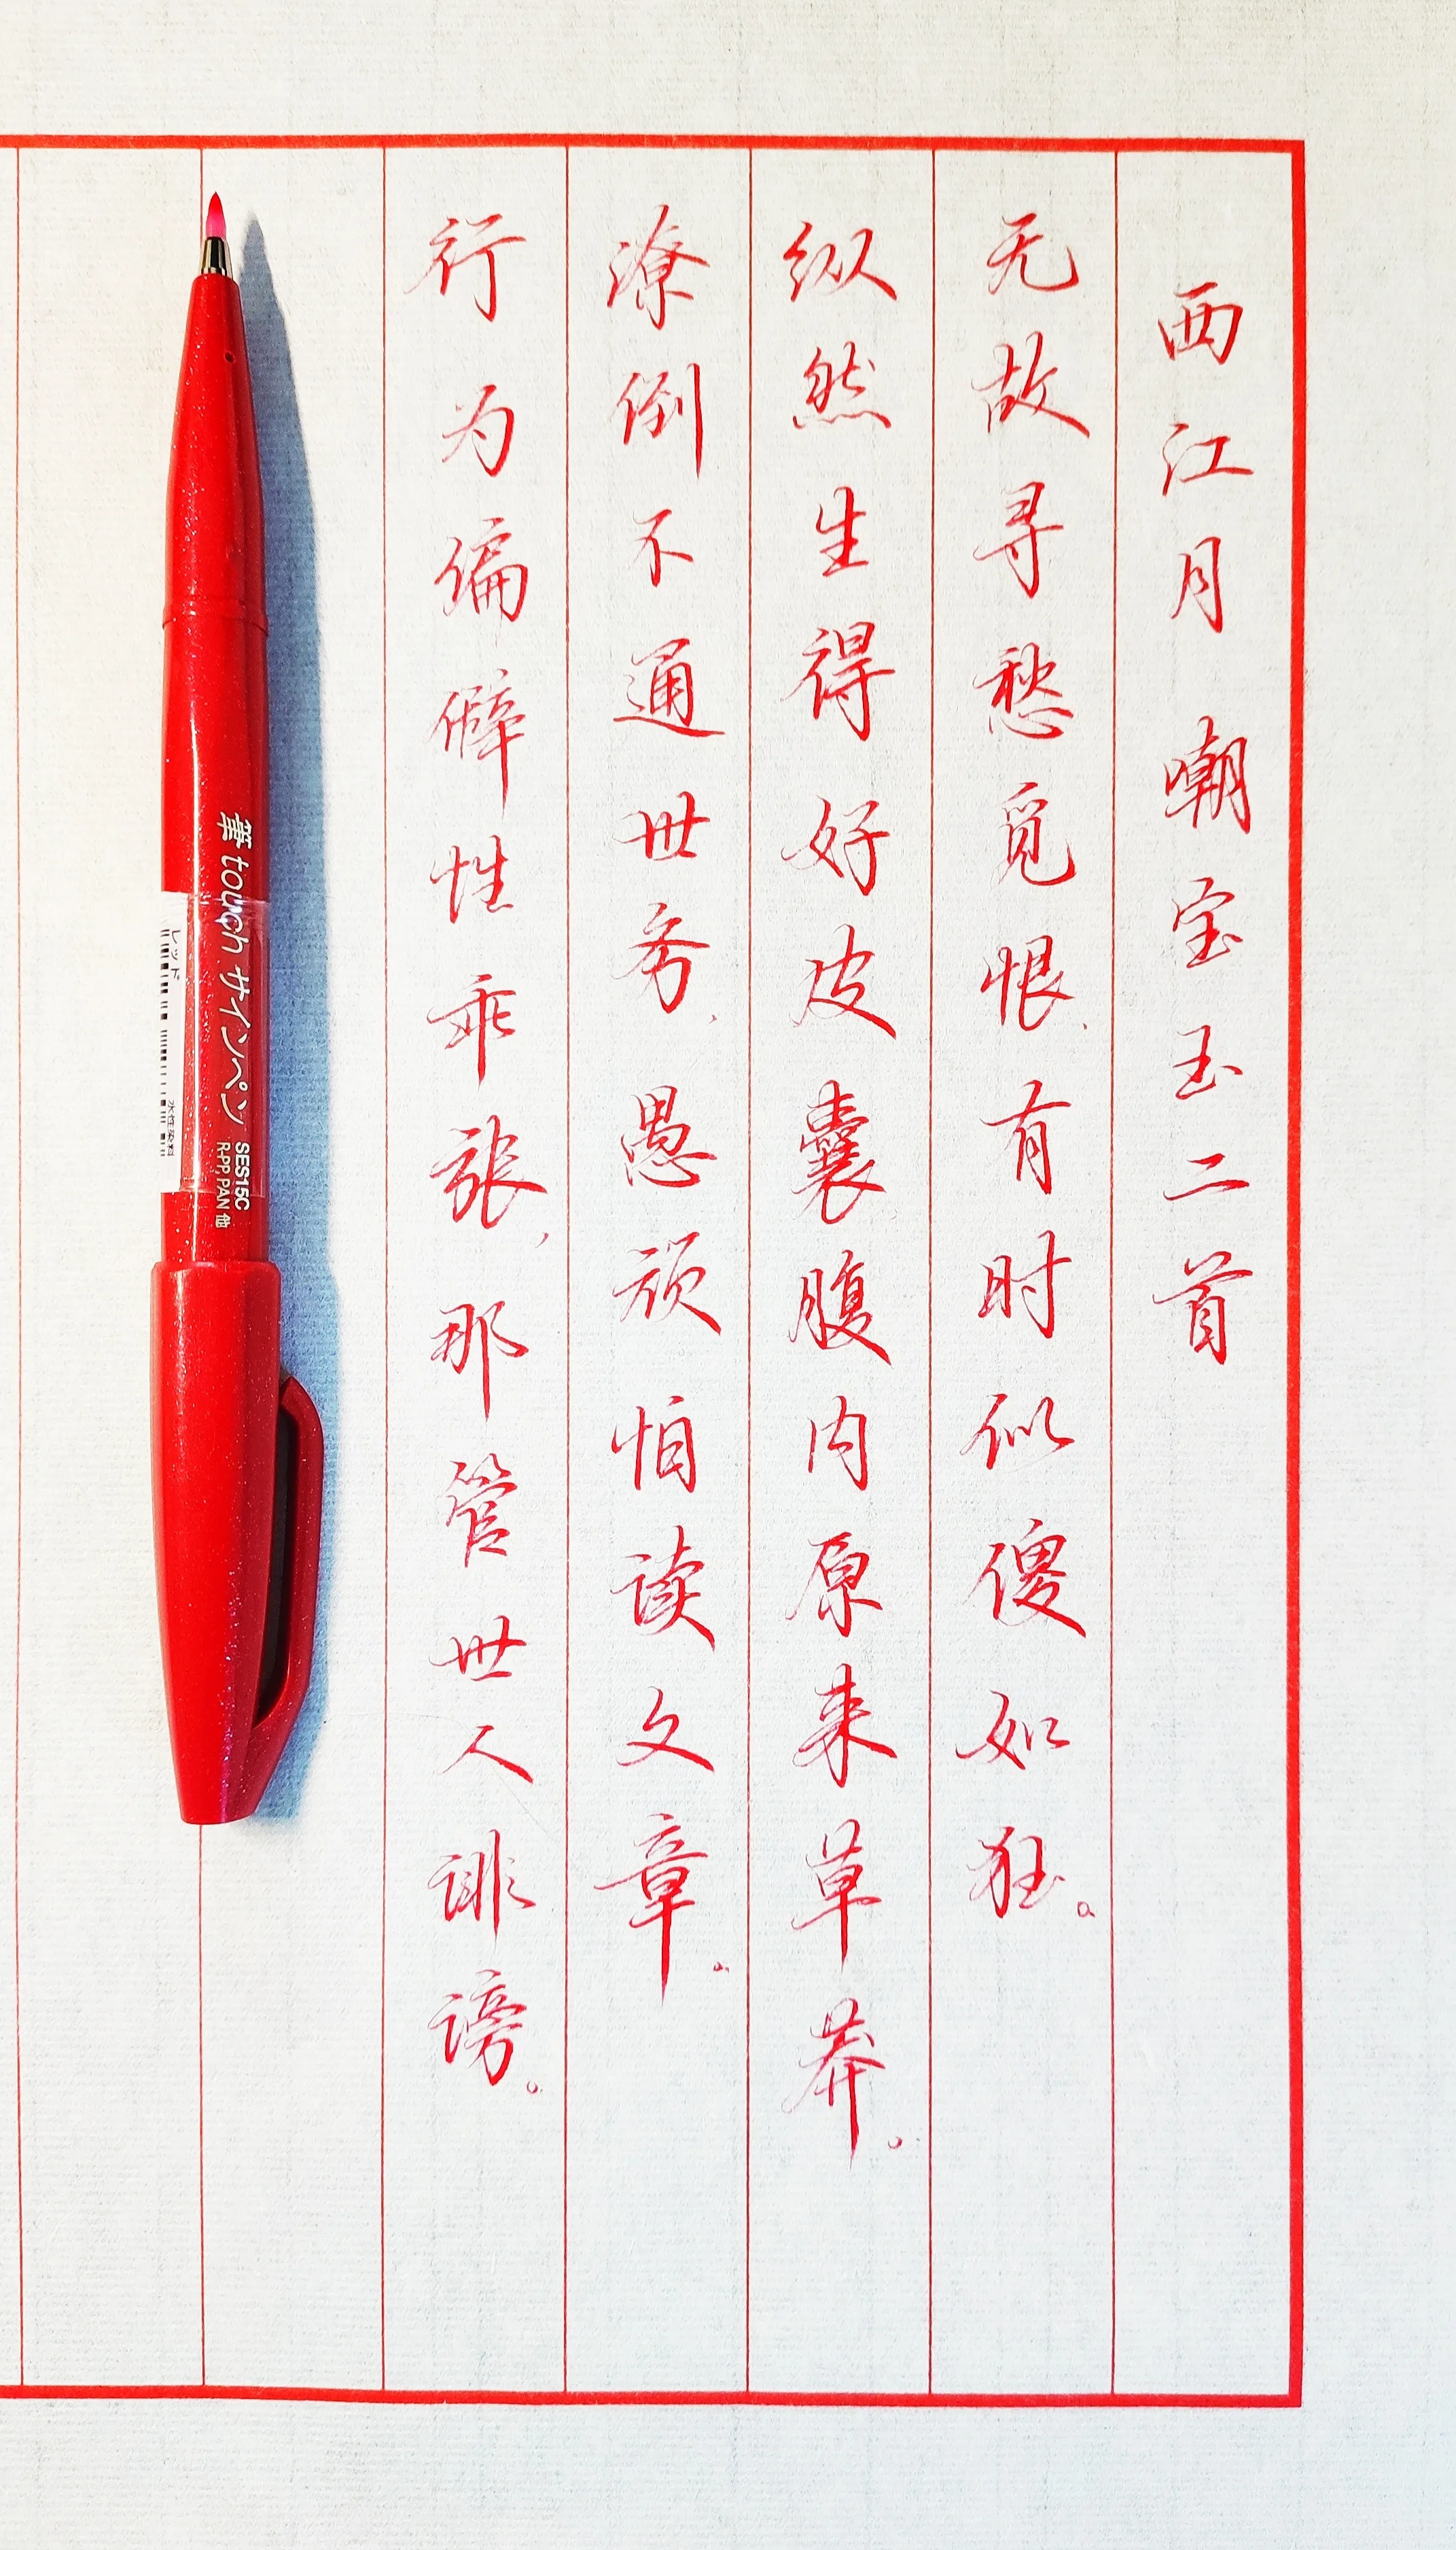 西江月 嘲宝玉二首
无故寻愁觅恨，有时似傻如狂。
纵然生得好皮囊腹内原来草莽。
潦倒不通世务，愚顽怕读文章。
行为偏僻性乖张，那管世人诽谤。
筆touchサインペン SES15C
R-PP, PAN 他
レッド
水性染料